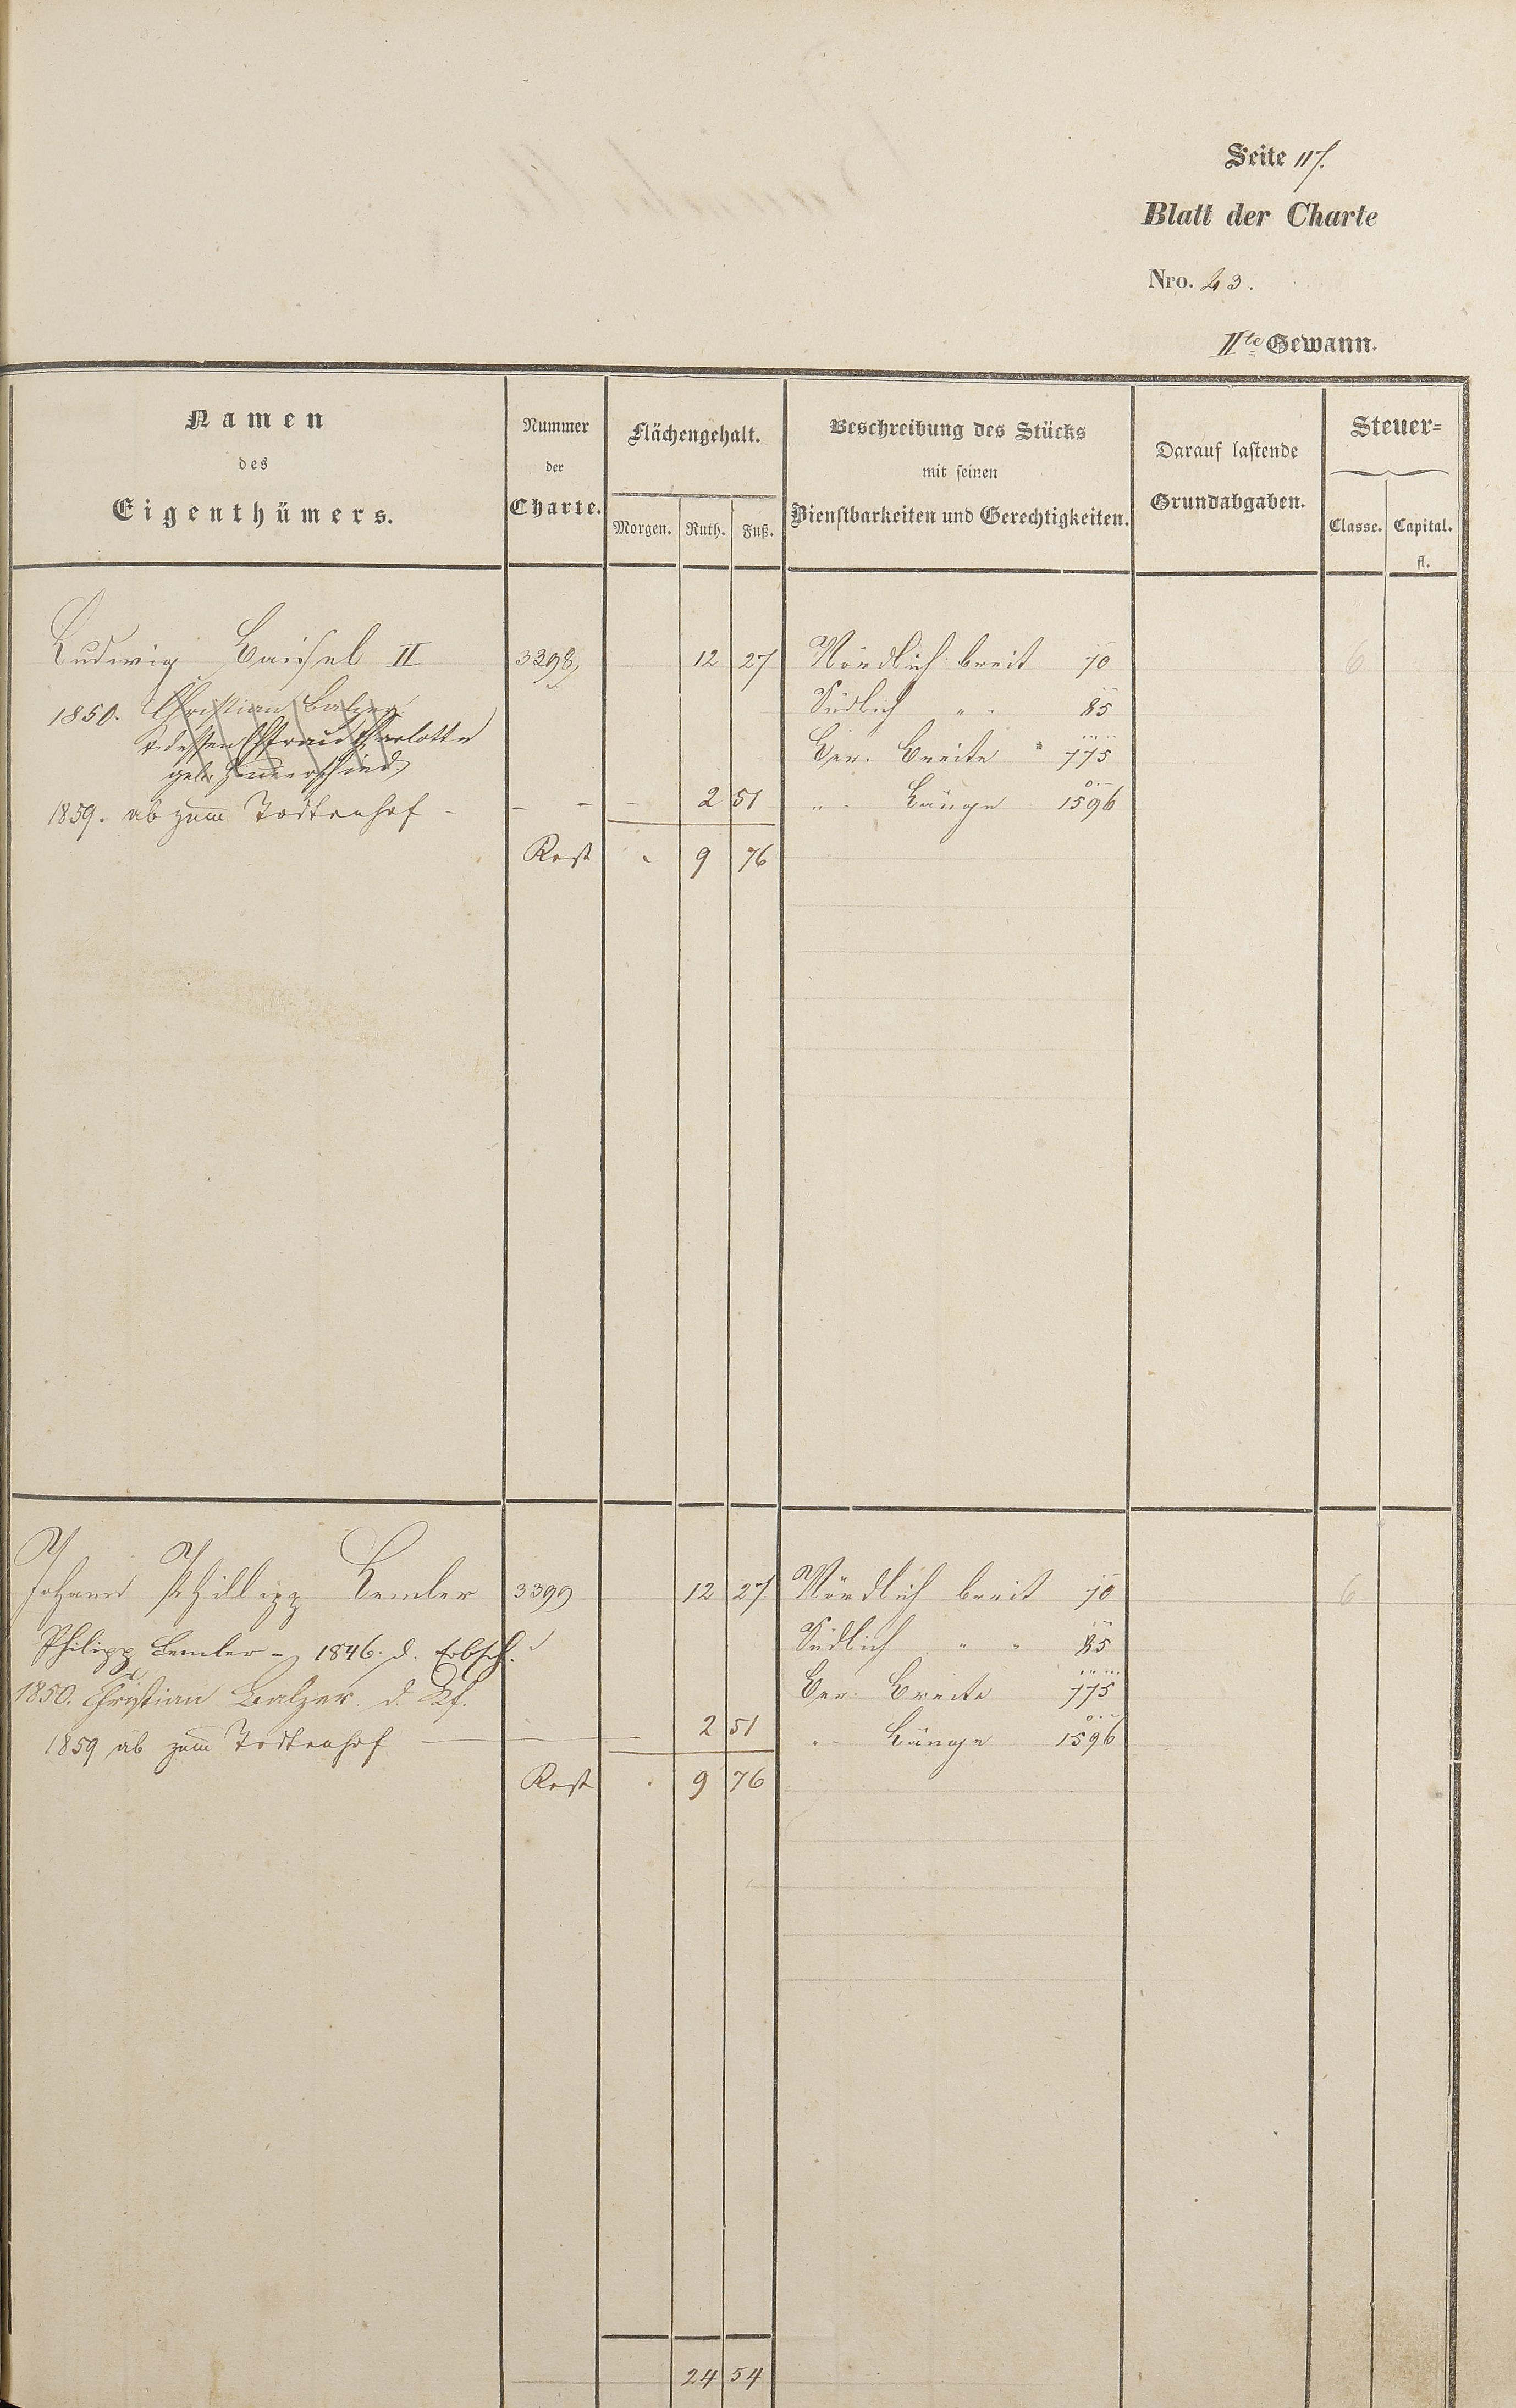 Seite 117.
Blatt der Charte
Nro. 23.
IIte Gewann.
Namen
des
Eigenthümers.
Nummer
der
Charte.
Flächengehalt.
Morgen. Ruth. Fuß.
Beschreibung des Stücks
mit seinen
Dienstbarkeiten und Gerechtigkeiten.
Darauf lastende
Grundabgaben.
Steuer-
Classe. Capital.
fl.
Ludwig Baisel II 3398 12 27 Nördlich breit 70 6
1850. Christian Balzer Südlich " " 85
& dessen Ehfrau Charlotte Ber. Breite 775
geb.
1859. ab zum Todtenhof - - - - 2 51 " Länge 1596
Rest 9 76
Johann Phillipp Lemler 3399 12 27 Nördlich breit 70 6
Philipp Lemler - 1846. d. Erbsch. Südlich " " 85
1850. Christian Balzer d. Kf. Ber. Breite 775
1859 ab zum Todtenhof 2 51 " Länge 1596
Rest 9 76
24 54